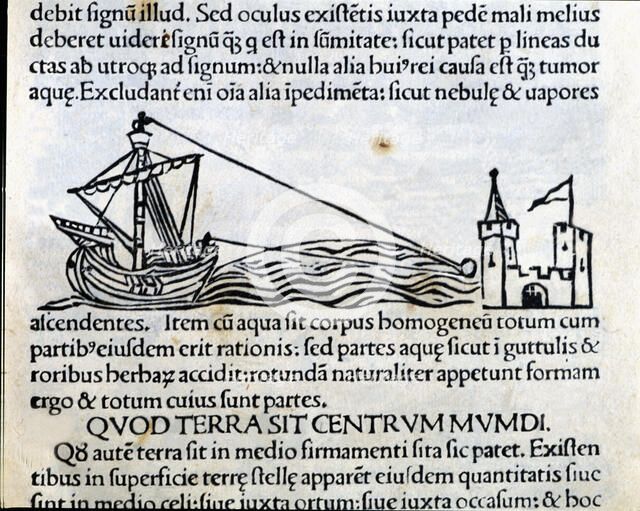 debit ſignũ illud. Sed oculus exiſtẽtis iuxta pedẽ mali melius
deberet uidere ſignũ q̃ꝫ q eſt in ſũmitate: ſicut patet ꝑ lineas du
ctas ab utroqꝫ ad ſignum: & nulla alia huiꝰ rei cauſa eſt q̃ꝫ tumor
aquę. Excludant̃ eni oĩa alia ĩpedimẽta: ſicut nebulę & uapores
aſcendentes. Item cũ aqua ſit corpus homogeneũ totum cum
partibꝰ eiuſdem erit rationis: ſed partes aquę ſicut ĩ guttulis &
roribus herbaꝝ accidit: rotundã naturaliter appetunt formam
ergo & totum cuius ſunt partes.
QVOD TERRA SIT CENTRVM MVMDI.
autẽ terra ſit in medio firmamenti ſita ſic patet. Exiſten
tibus in ſuperficie terrę ſtellę apparẽt eiuſdem quantitatis ſiue
ſint in medio celi: ſiue iuxta ortum: ſiue iuxta occaſum: & hoc